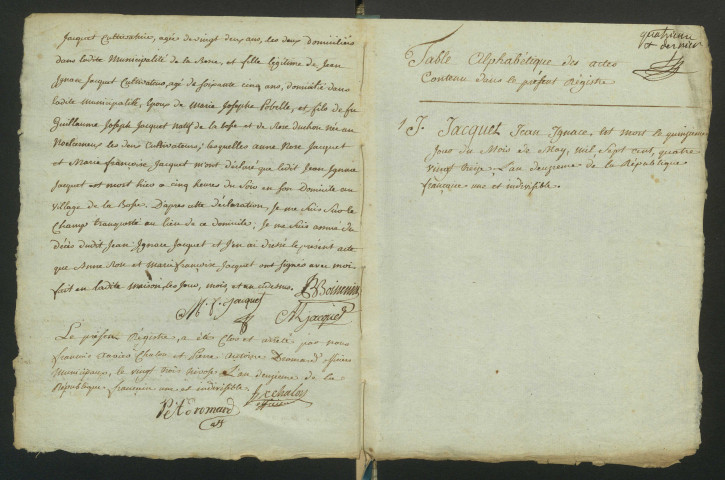 Jacquet Cultivatrice, agée de vingt deux ans, les deux domiciliées
dans ladite Municipalité de la Bosse, et fille légitime de Jean
Ignace Jacquet Cultivateur, agé de soixante cinq ans, domicilié dans
ladite municipalité, Epoux de Marie Josephe Pobelle, et fils de feu
Guillaume Joseph Jacquet natif de la bosse et de Rose duchon née au
les deux Cultivateurs; lesquelles anne Rose Jacquet
et Marie françoise Jacquet m'ont déclaré que ledit Jean Ignace
Jacquet est mort hier a cinq heures du Soir en Son Domicile au
Village de la Bosse. D'apres cette déclaration, Je me Suis Sur le
Champ transporté au lieu de ce domicile; je me Suis assuré du
Décès dudit Jean Ignace Jacquet et J'en ai dressé le present acte
que Anne Rose et marie françoise Jacquet ont Signés avec moi
fait en ladite maison, les Jour, mois, et an ci dessus.
M. f. Jacquet
Jacquet
Le present Registre, a été Clos et arreté par nous
françois Chalon et Pierre Dromard officiers
Municipaux, le vingt trois nivose Lan deuzieme de la
République françoise une et indivisible.
Dromard
Chalon
quatrieme
et dernier
Table Alphabétique des actes
Contenu dans le présent Régistre
1 J. Jacquet Jean Ignace, est mort le quinzieme
Jour du Mois de May, mil Sept Cent, quatre
vingt treize. Lan deuzieme de la République
françoise une et indivisible.